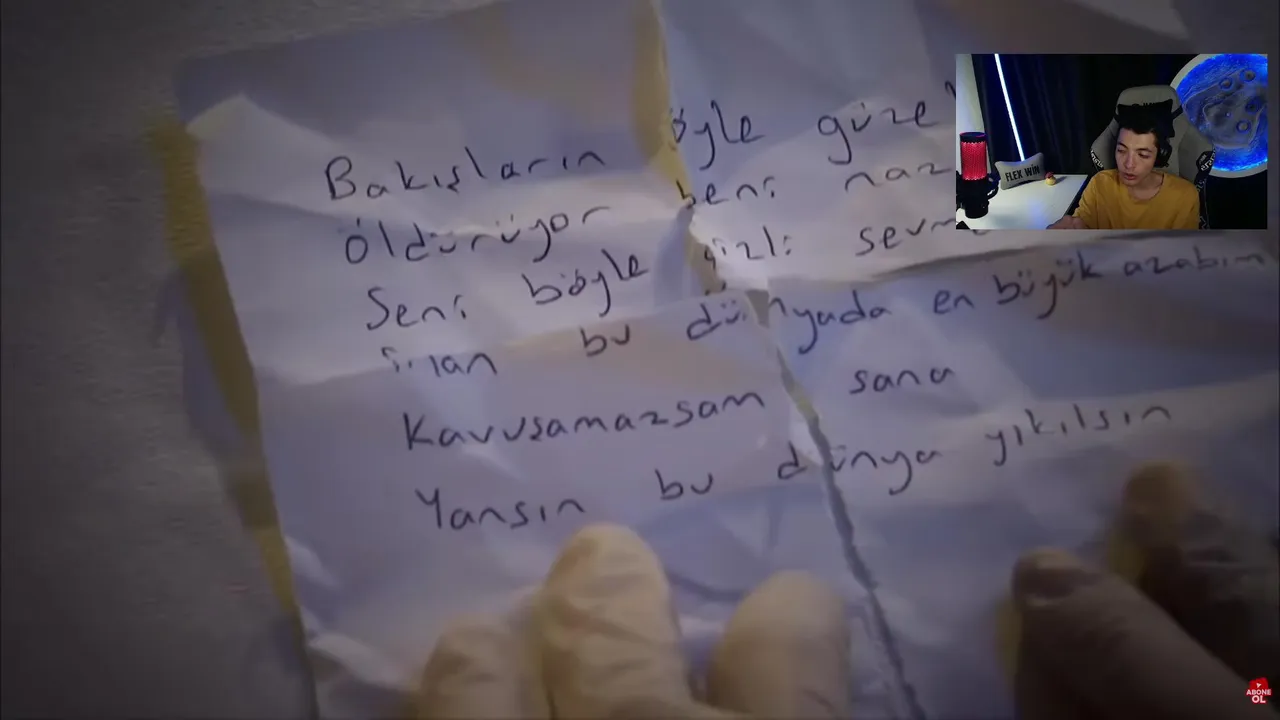 Bakışların öyle güzel
Öldürüyor beni naz
Seni böyle gizli sevm
inan bu dünyada en büyük azabım
Kavuşamazsam sana
Yansın bu dünya yıkılsın
FLEX WIN
ABONE
OL